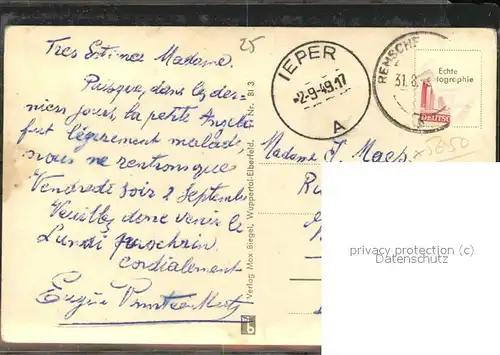 25
Tres Estimée Madame.
Puisque, dans les der-
niers jours, la petite Angèle
fut légèrement malade
nous ne rentrons que
Vendredi soir 2 Septembre
Veuillez donc venir le
Lundi prochain
cordialement
IEPER
2-9-49.17
A
REMSCHE
31.8.
Echte
tographie
DEUTSC
Madame J. Maes
5050
Verlag Max Biegel, Wuppertal-Elberfeld.
Nr. Bl 3
privacy protection (c)
Datenschutz